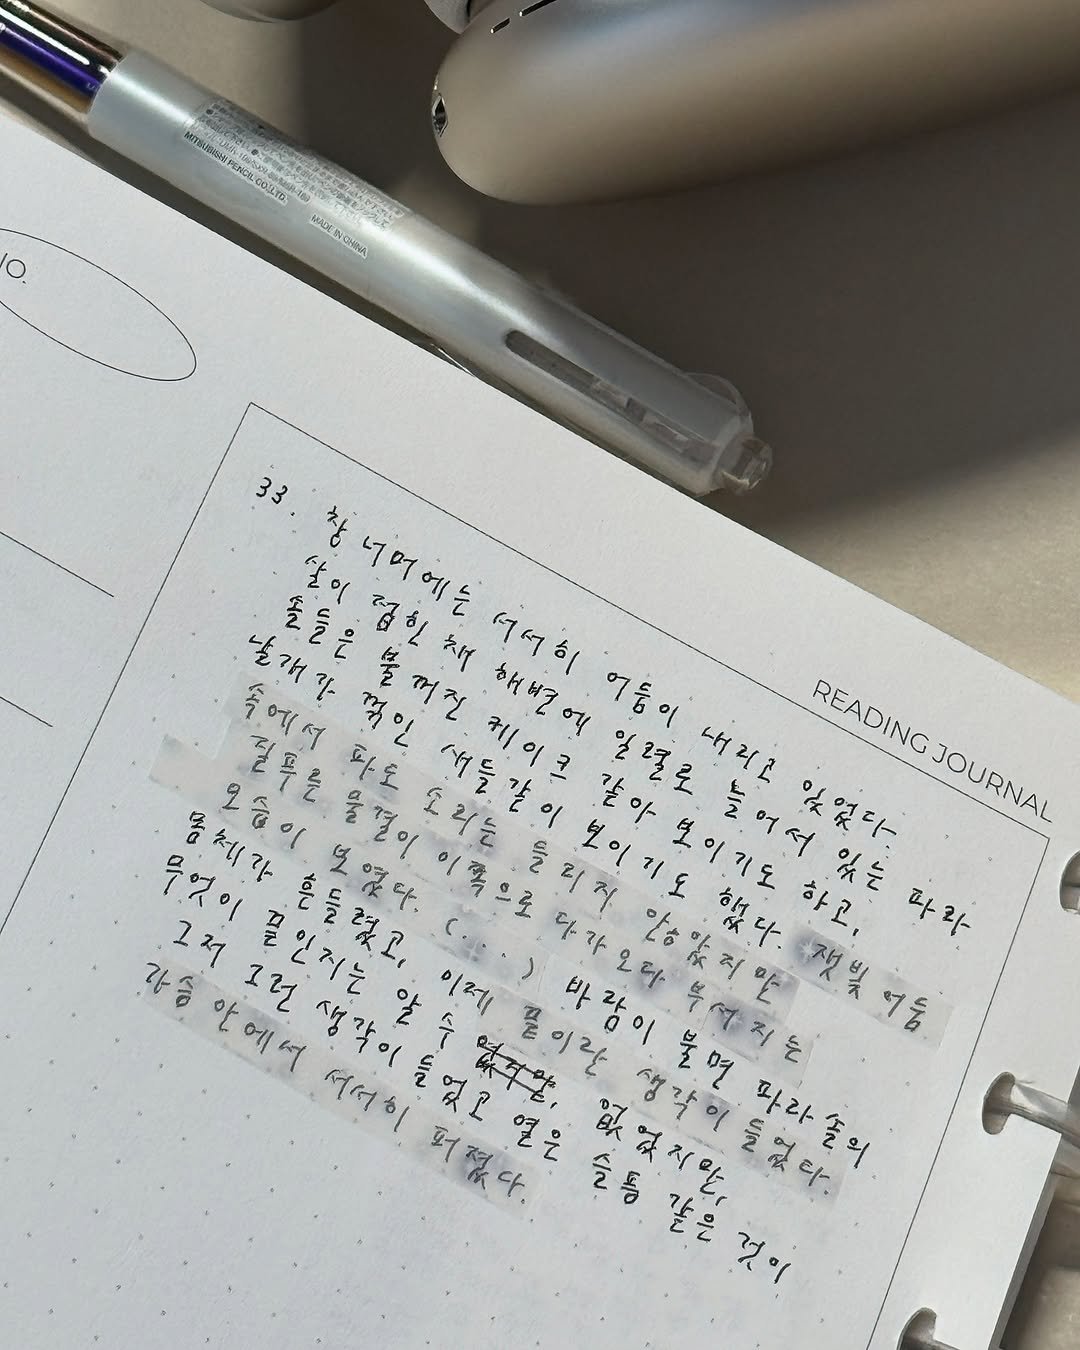 MITSUBISHI PENCIL CO.,LTD.
MADE IN CHINA
NO.
READING JOURNAL
33. 창 너머에는 서서히 어둠이 내리고 있었다.
살이 접힌 채 해변에 일렬로 늘어서 있는 파라
솔들은 불 꺼진 케이크 같아 보이기도 하고,
날개가 꺾인 새들같이 보이기도 했다. 잿빛 어둠
속에서 파도 소리는 들리지 않았지만
검푸른 물결이 이쪽으로 다가오다 부서지는
모습이 보였다. (...) 바람이 불면 파라솔의
몸체가 흔들렸고, 이제 끝이란 생각이 들었다.
무엇이 끝인지는 알 수 없었지만,
그저 그런 생각이 들었고 옅은 슬픔 같은 것이
가슴 안에서 서서히 퍼졌다.